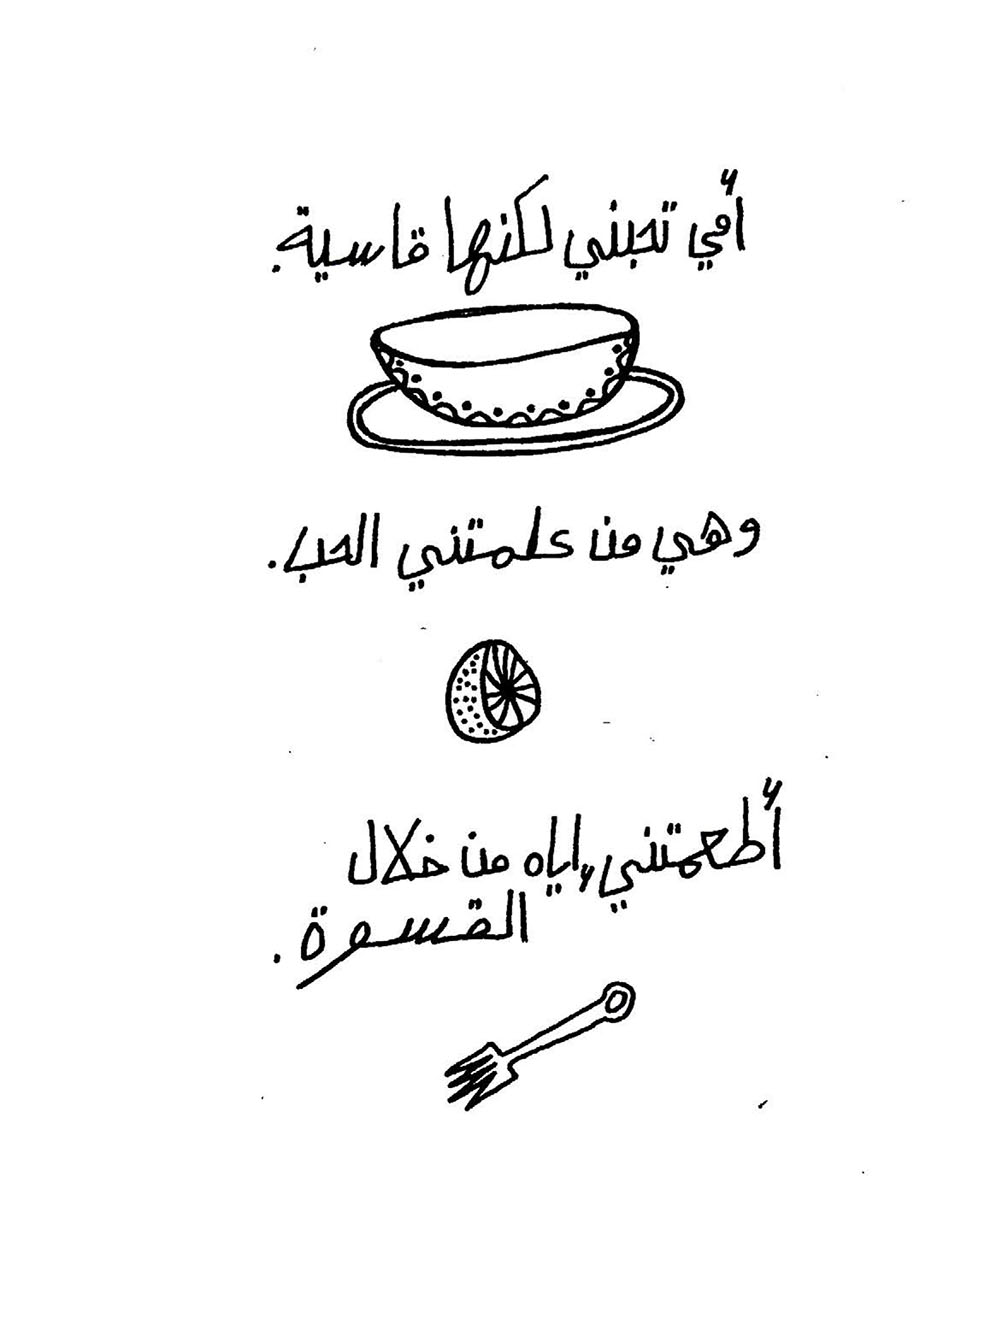 أمّي تحبني لكنها قاسية.
وهي من علمتني الحب.
أطعمتني إياه من خلال
القسوة.